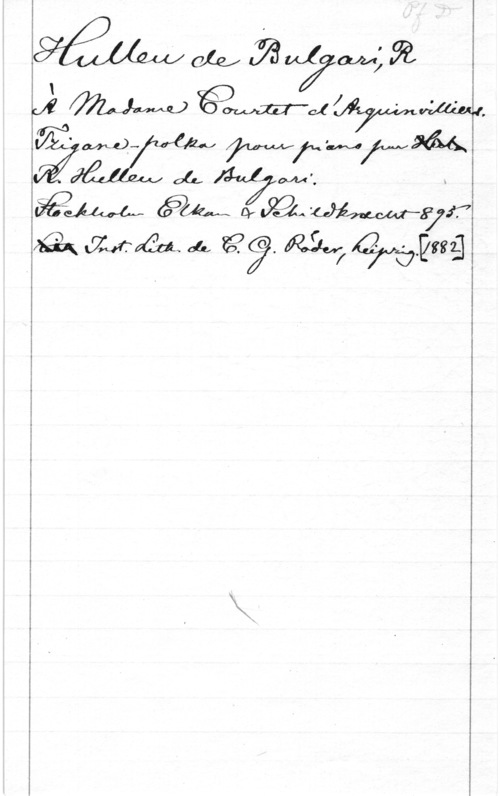 Pf D
Hulleu de Bulgari, R
À Madame Courtet d'Arquinvilliers.
Tzigane-polka pour piano par
R. Hulleu de Bulgari.
Stockholm Elkan & Schildknecht 895.
Inst. Lith. de C. G. Röder, Leipzig. [1882]